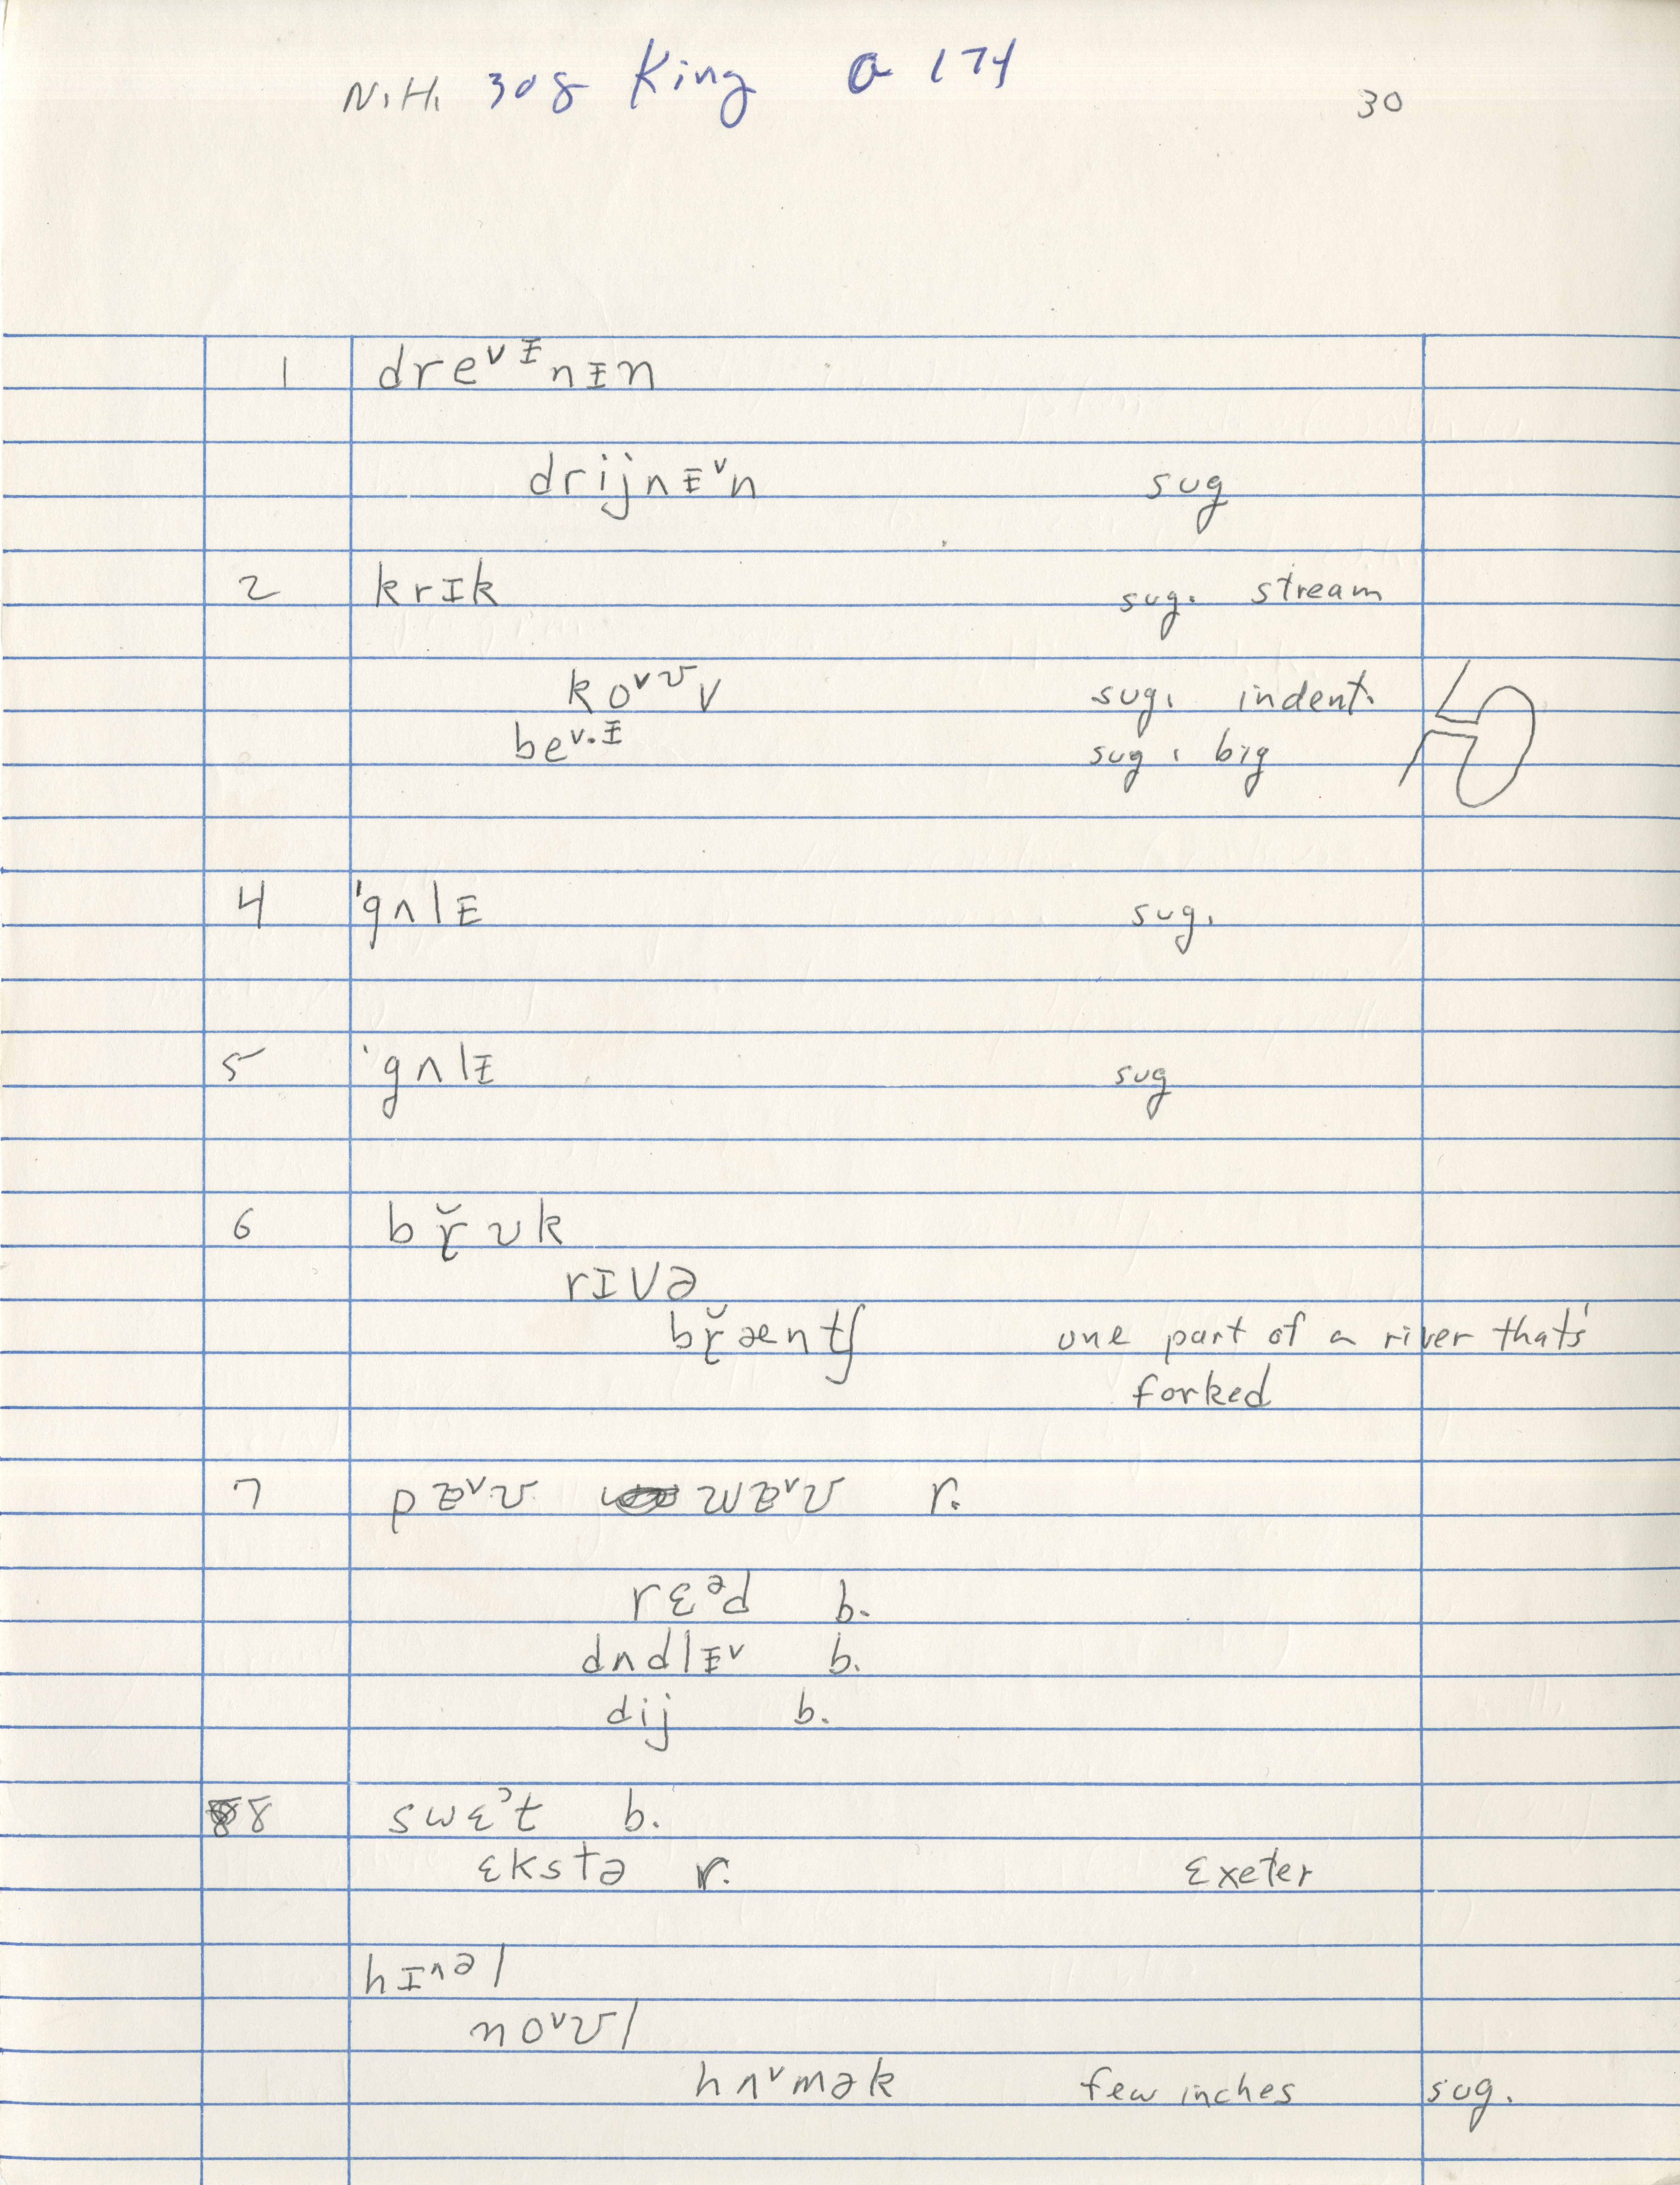 N.H. 308 King a 174 30
1 dreᵛᶧnᵻn
drijnᵻᵛn sug
2 krɪk sug. stream
koᵛᶷv sug. indent.
beᵛ·ᶧ sug. big
4 'gʌlᵻ sug.
5 'gʌlᵻ sug
6 bɽ̆ʊk
rɪvə
bɽ̆æntʃ one part of a river that's
forked
7 pᵛʊ wᵛʊ r.
rɛᵊd b.
dʌdlᵻᵛ b.
dij b.
8 swɛˀt b.
ɛkstə r. Exeter
hɪᶺəl
noᵛʊl
hʌᵛmək few inches sug.